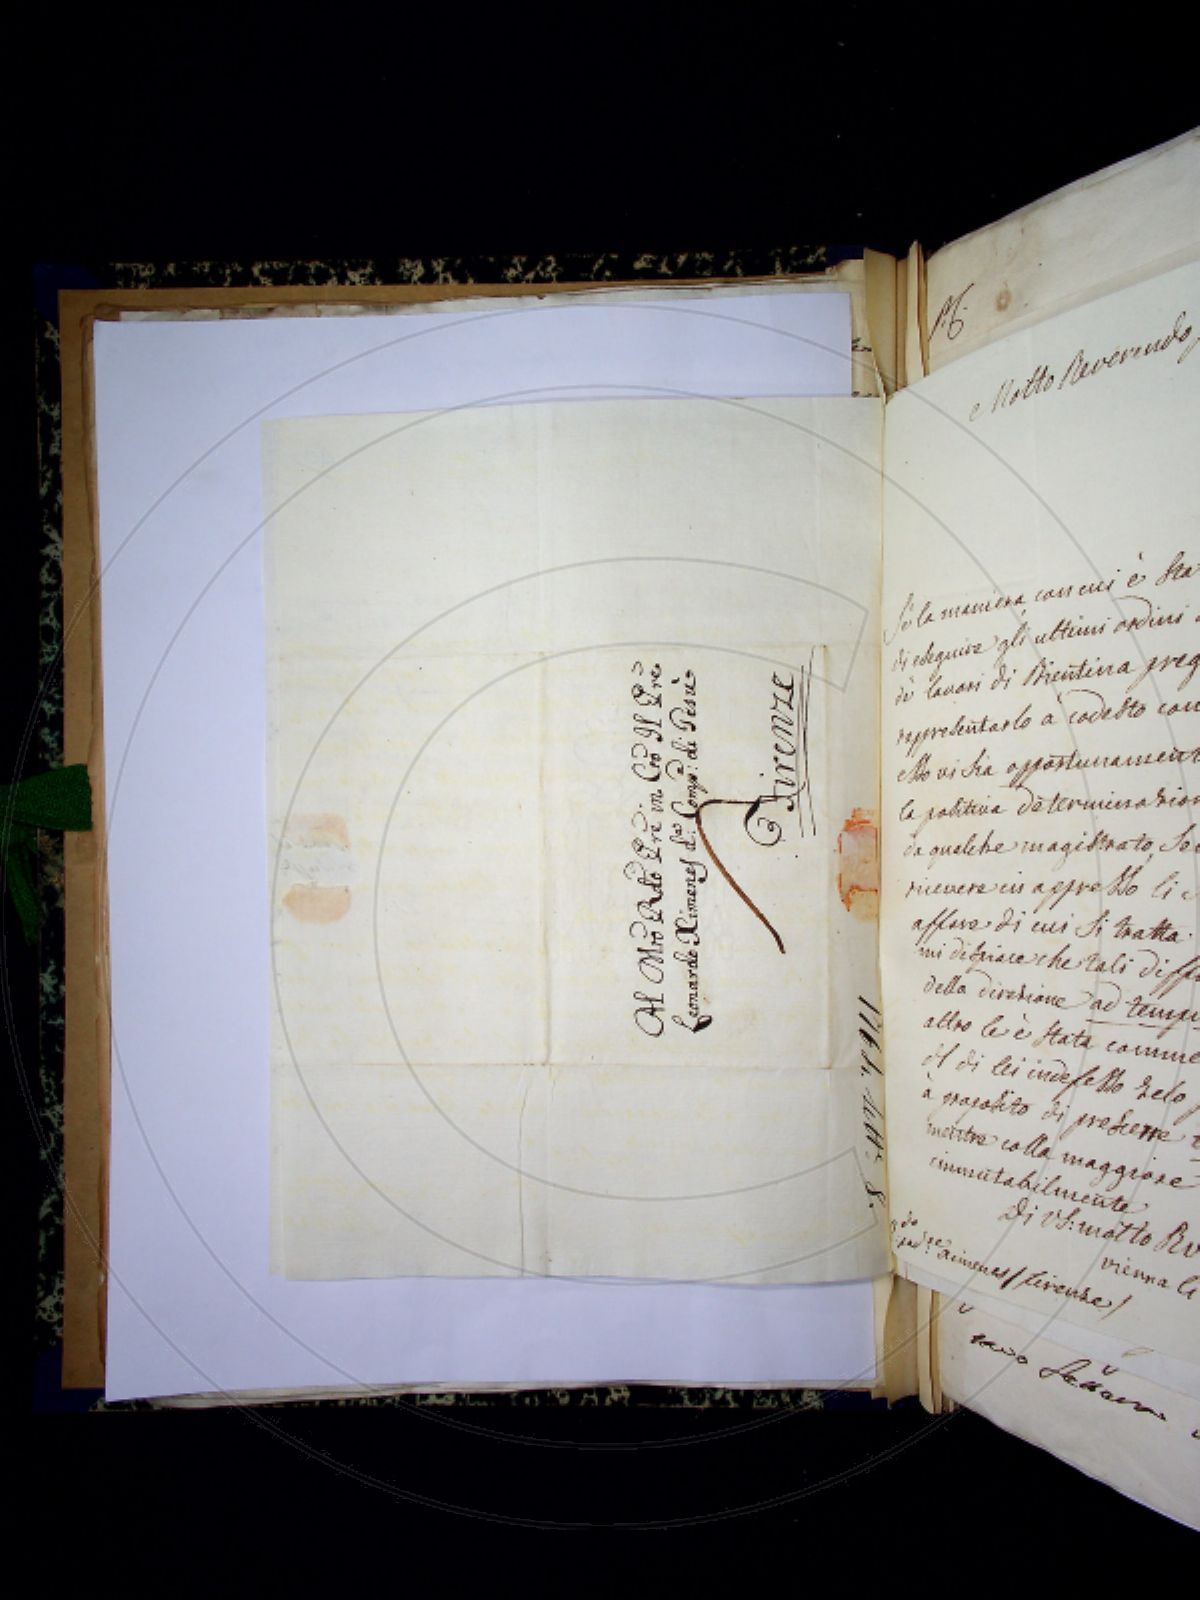 Al Mto Rdo Pre in Cto Il Pre
Leonardo Ximenes da Compa: di Gesù
Firenze
M
Molto Reverendo
Se la maniera con cui è sta
di eseguire gl'ultimi ordini
de lavori di Bientina preg
rapresentarlo à codesto con
esso vi sia opportunament
la positiva determinazion
da qualche magistrato, se
ricevere in appresso li
affare di cui si tratta.
mi dispiace che tali diffi
della direzione ad temp
altro le è stata comme
il di lei indefesso zelo
à proposito di presierre
mentre colla maggiore
immutabilmente
Di VS: molto Rv
vienna li
Ximenes / firenze /